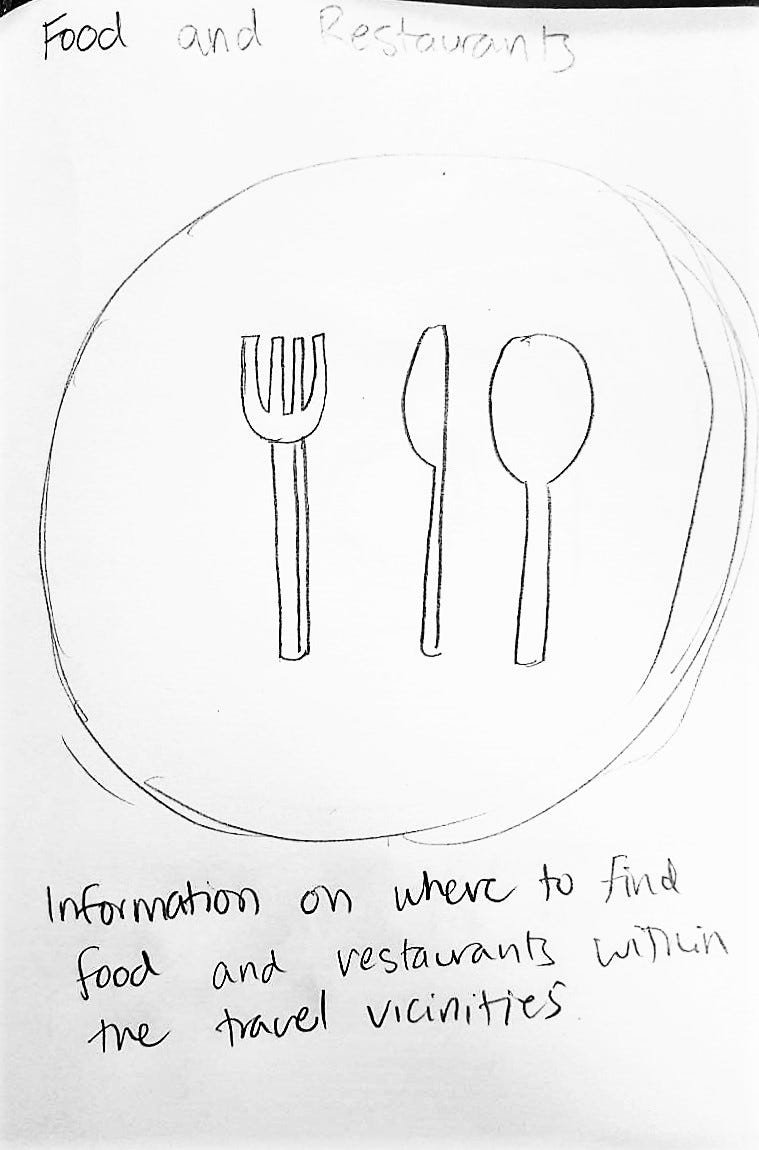 Food and Restaurants
Information on where to find
food and restaurants within
the travel vicinities